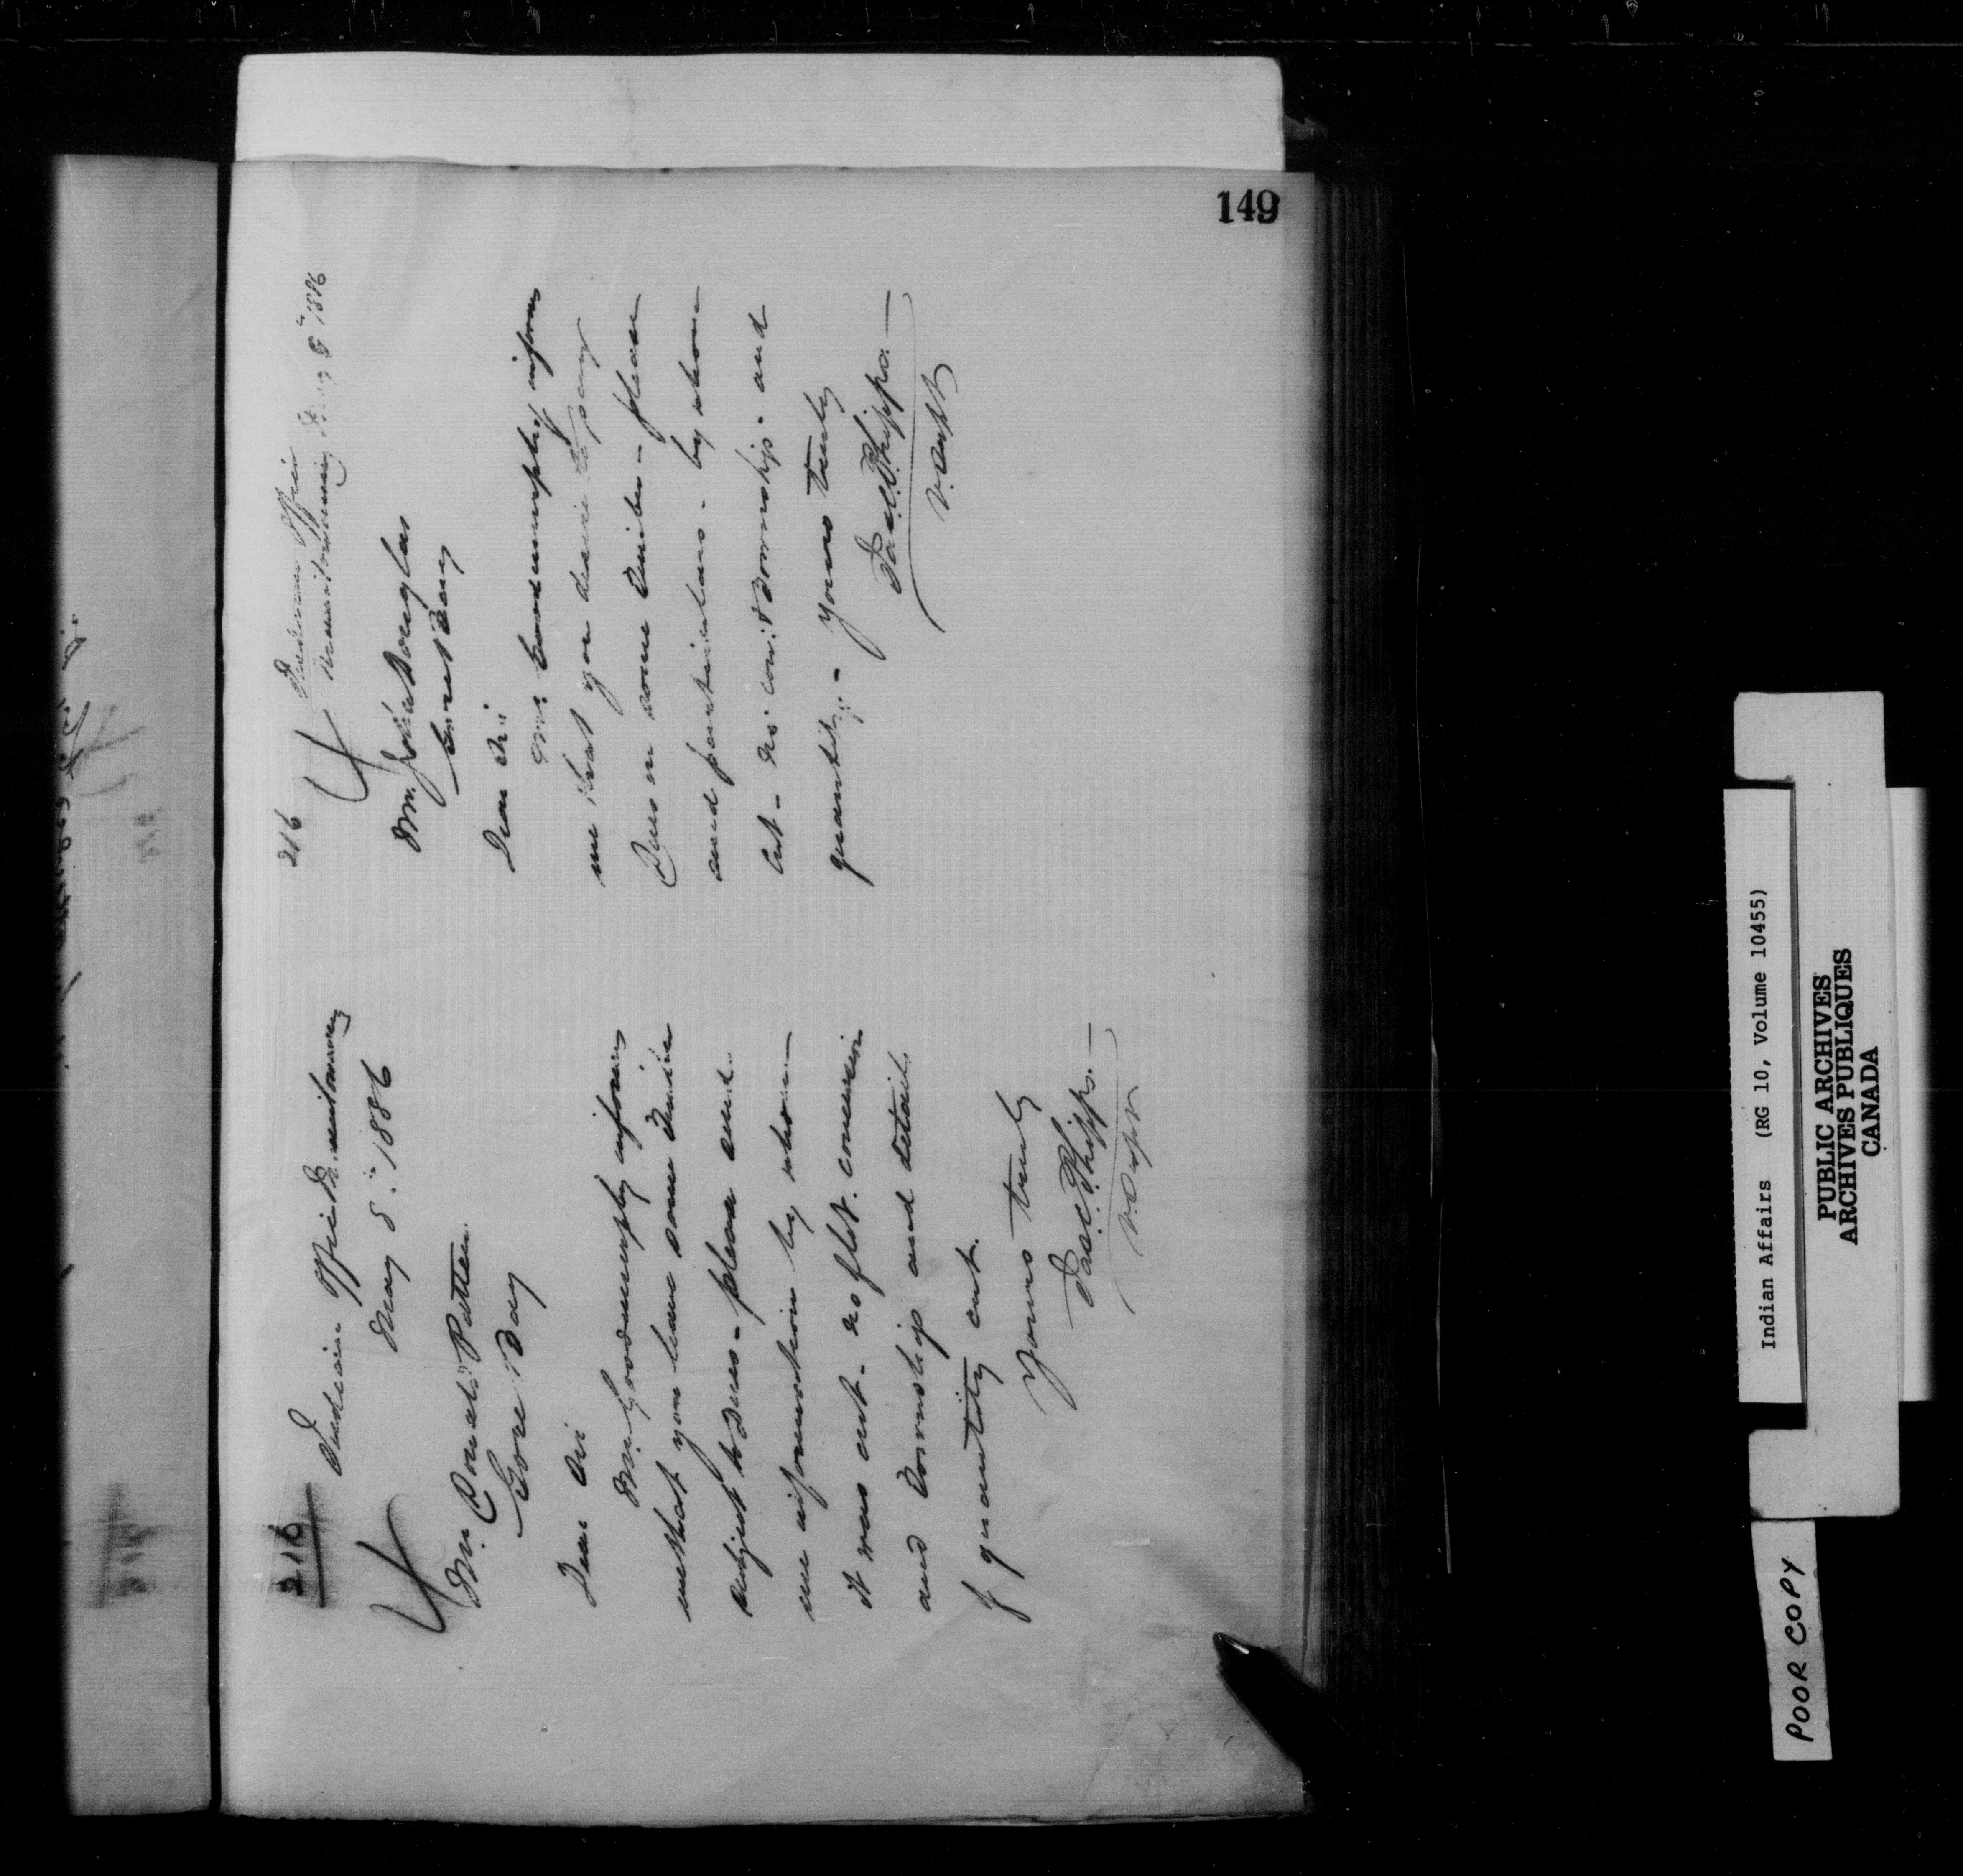 149
216
Indian Office Manitowaning
May 8th 1886
Mr. Donald Patten
Gore Bay
Dear Sir
Mr. Goodmurphy informs
me that you have some Timber
subject to Dues - please send
me information by whom
it was cut - no of lot. concession
and Township and detail
of quantity cut.
Yours truly
Jas. C. Phipps.
V. Supt
216
Indian Office
Manitowaning May 8th 1886
Mr. John Douglas
Gore Bay
Dear Sir
Mr. Goodmurphy informs
me that you desire to pay
Dues on some Timber - please
send particulars - by whom
cut - no: con: & Township - and
quantity. - Yours truly
Jas. C. Phipps.
V. Supt
Indian Affairs (RG 10, Volume 10455)
PUBLIC ARCHIVES
ARCHIVES PUBLIQUES
CANADA
POOR COPY